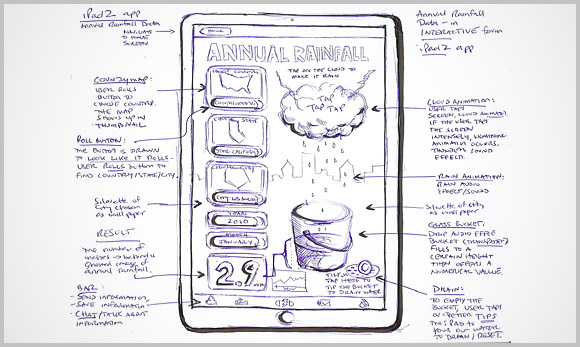 iPad 2 app
Annual Rainfall Data
NAVIGATE
TO HOME
SCREEN
COUNTRY MAP:
USER ROLLS
BUTTON TO
CHOOSE COUNTRY.
THE MAP
SHOWS UP IN
THUMBNAIL
ROLL BUTTON:
THE BUTTON IS DRAWN
TO LOOK LIKE IT ROLLS.
USER ROLLS BUTTON TO
FIND COUNTRY/STATE/CITY.
Silouette of
City chosen
as wall paper
RESULT
The number of
inches
image of
annual rainfall.
BAR:
- SEND INFORMATION,
- SAVE INFORMATION
- CHAT/TALK ABOUT
INFORMATION
Home
ANNUAL RAINFALL
TAP ON THE CLOUD TO
MAKE IT RAIN
TAP
TAP TAP
COUNTRY
STATE
YEAR
2010
JANUARY
2.9
TAP HERE TO
TIP THE BUCKET
TO DRAIN WATER
Annual Rainfall
Data - in
INTERACTIVE form
iPad 2 app
CLOUD ANIMATION:
USER TAPS
SCREEN, CLOUD ANIMATES
IF THE USER TAP
THE SCREEN
INTENSELY, LIGHTNING
ANIMATION OCCURS,
THUNDER SOUND
EFFECT.
RAIN ANIMATION:
RAIN AUDIO
EFFECT/SOUND
Silouette of city
as wall paper
GLASS BUCKET:
DRIP AUDIO EFFEC
BUCKET (TRANSPARENT)
FILLS TO A
CERTAIN HEIGHT
THEN OFFERS A
NUMERICAL VALUE.
DRAIN:
TO EMPTY THE
BUCKET, USER TAPS
OR BETTER TIPS
THE iPAD TO
POUR OUT WATER
TO DRAIN/RESET.